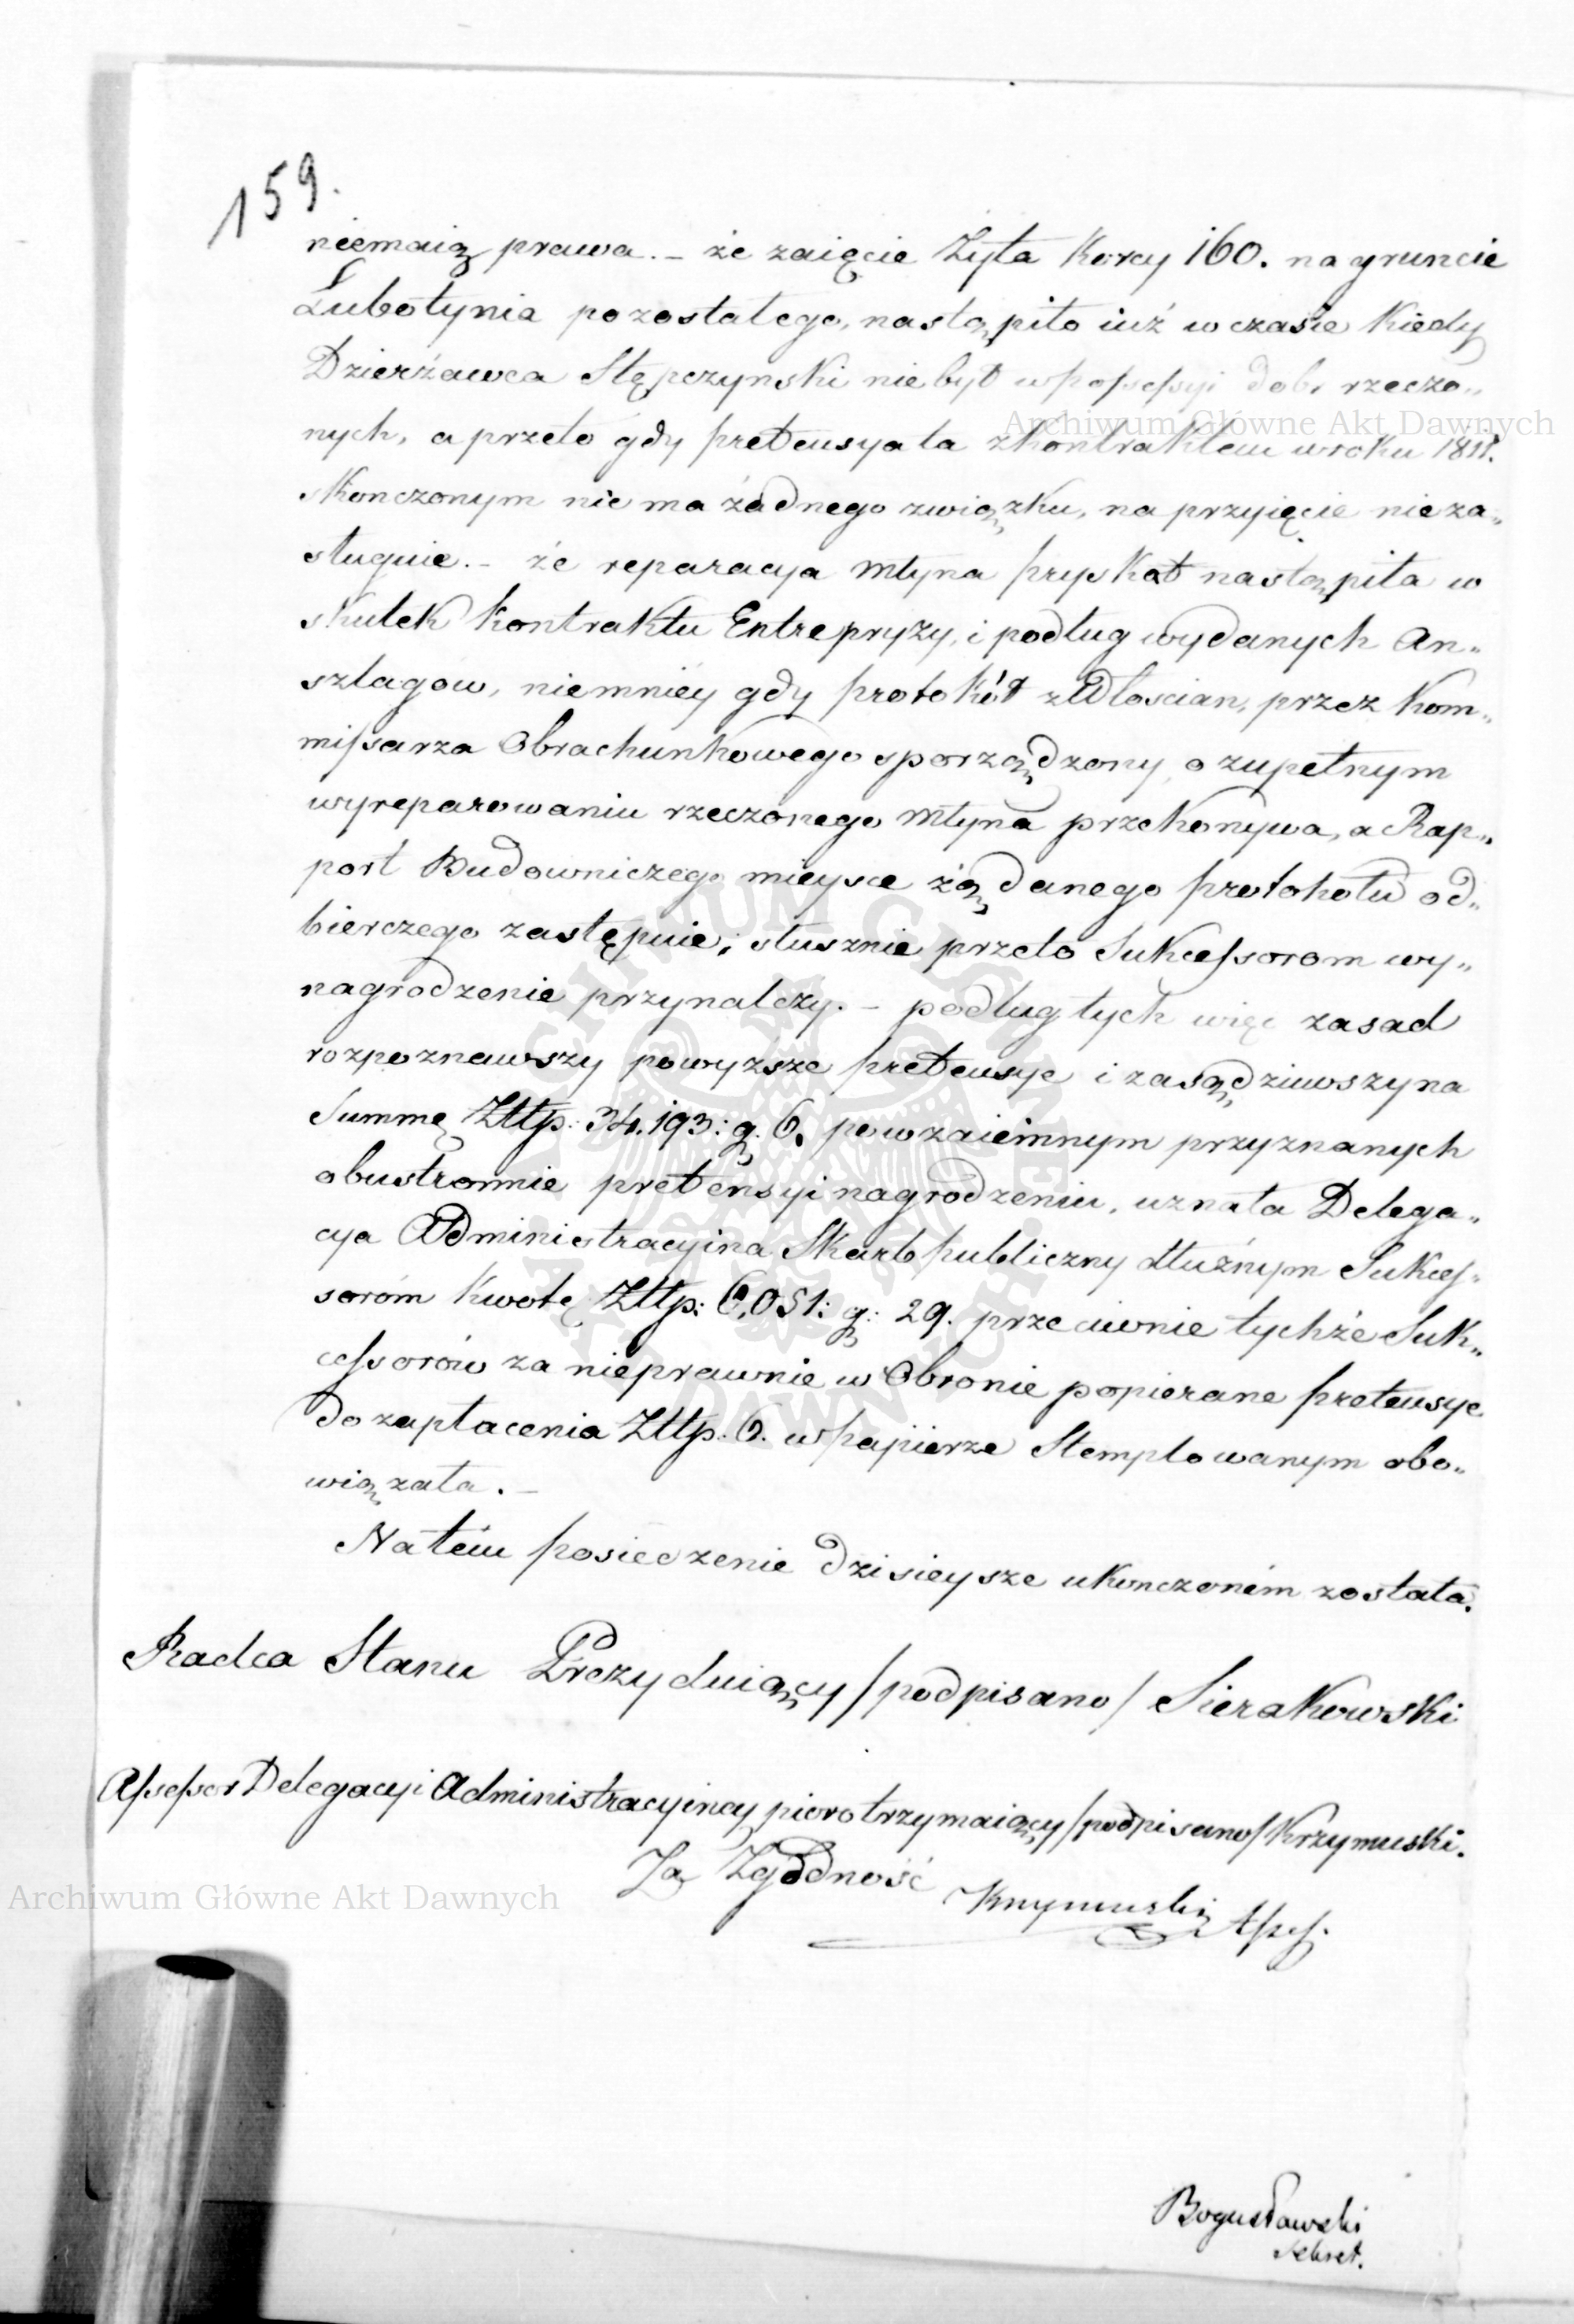 159.
niemaią prawa. – że zaięcie Żyta Korcy 160. na gruncie
Lubotynia pozostałego, nastąpiło iuż w czasie kiedy
Dzierżawca Stępczynski nie był w possessyi dobr rzeczo„
nych, a przeto gdy pretensya ta z kontraktem w roku 1811.
skonczonym nie ma żadnego związku, na przyięcie nie za„
sługuie. – że reparacya Młyna Pryskat nastąpiła w
skutek kontraktu Entrepryzy, i podług wydanych An„
szlagow, niemniéy gdy protokół z Włoscian, przez Kom„
missarza Obrachunkowego sporządzony, o zupełnym
wyreparowaniu rzeczonego Młyna przekonywa, a Rap„
port Budowniczego mieysce żądanego protokołu od„
bierczego zastępuie; słusznie przeto Sukcessorom wy„
nagrodzenie przynależy. – podług tych więc zasad
rozpoznawszy powyższe pretensye i zasądziwszy na
Summę Złłp: 34.193: g. 6. po wzaiemnym przyznanych
obustronnie pretensyi nagrodzeniu, uznała Delega„
cya Administracyina Skarb publiczny dłużnym Sukces„
soróm Kwotę Złłp: 6,051: g: 29. przeciwnie tychże Suk„
cessorów za nieprawnie w Obronie popierane pretensye
do zapłacenia Złłp. 6. w papierze Stemplowanym obo„
wiązała. –
Na tém posiedzenie dzisieysze ukonczoném zostało.
Radca Stanu Prezyduiący /podpisano/ Sierakowski
Assessor Delegacyi Administracyiney pioro trzymaiący /podpisano/ Krzymuski.
Za Zgodność
Krzymuski Assess.
Bogusławski
Sekret.
Archiwum Główne Akt Dawnych
Archiwum Główne Akt Dawnych
ARCHIWUM GŁÓWNE AKT DAWNYCH W WARSZAWIE